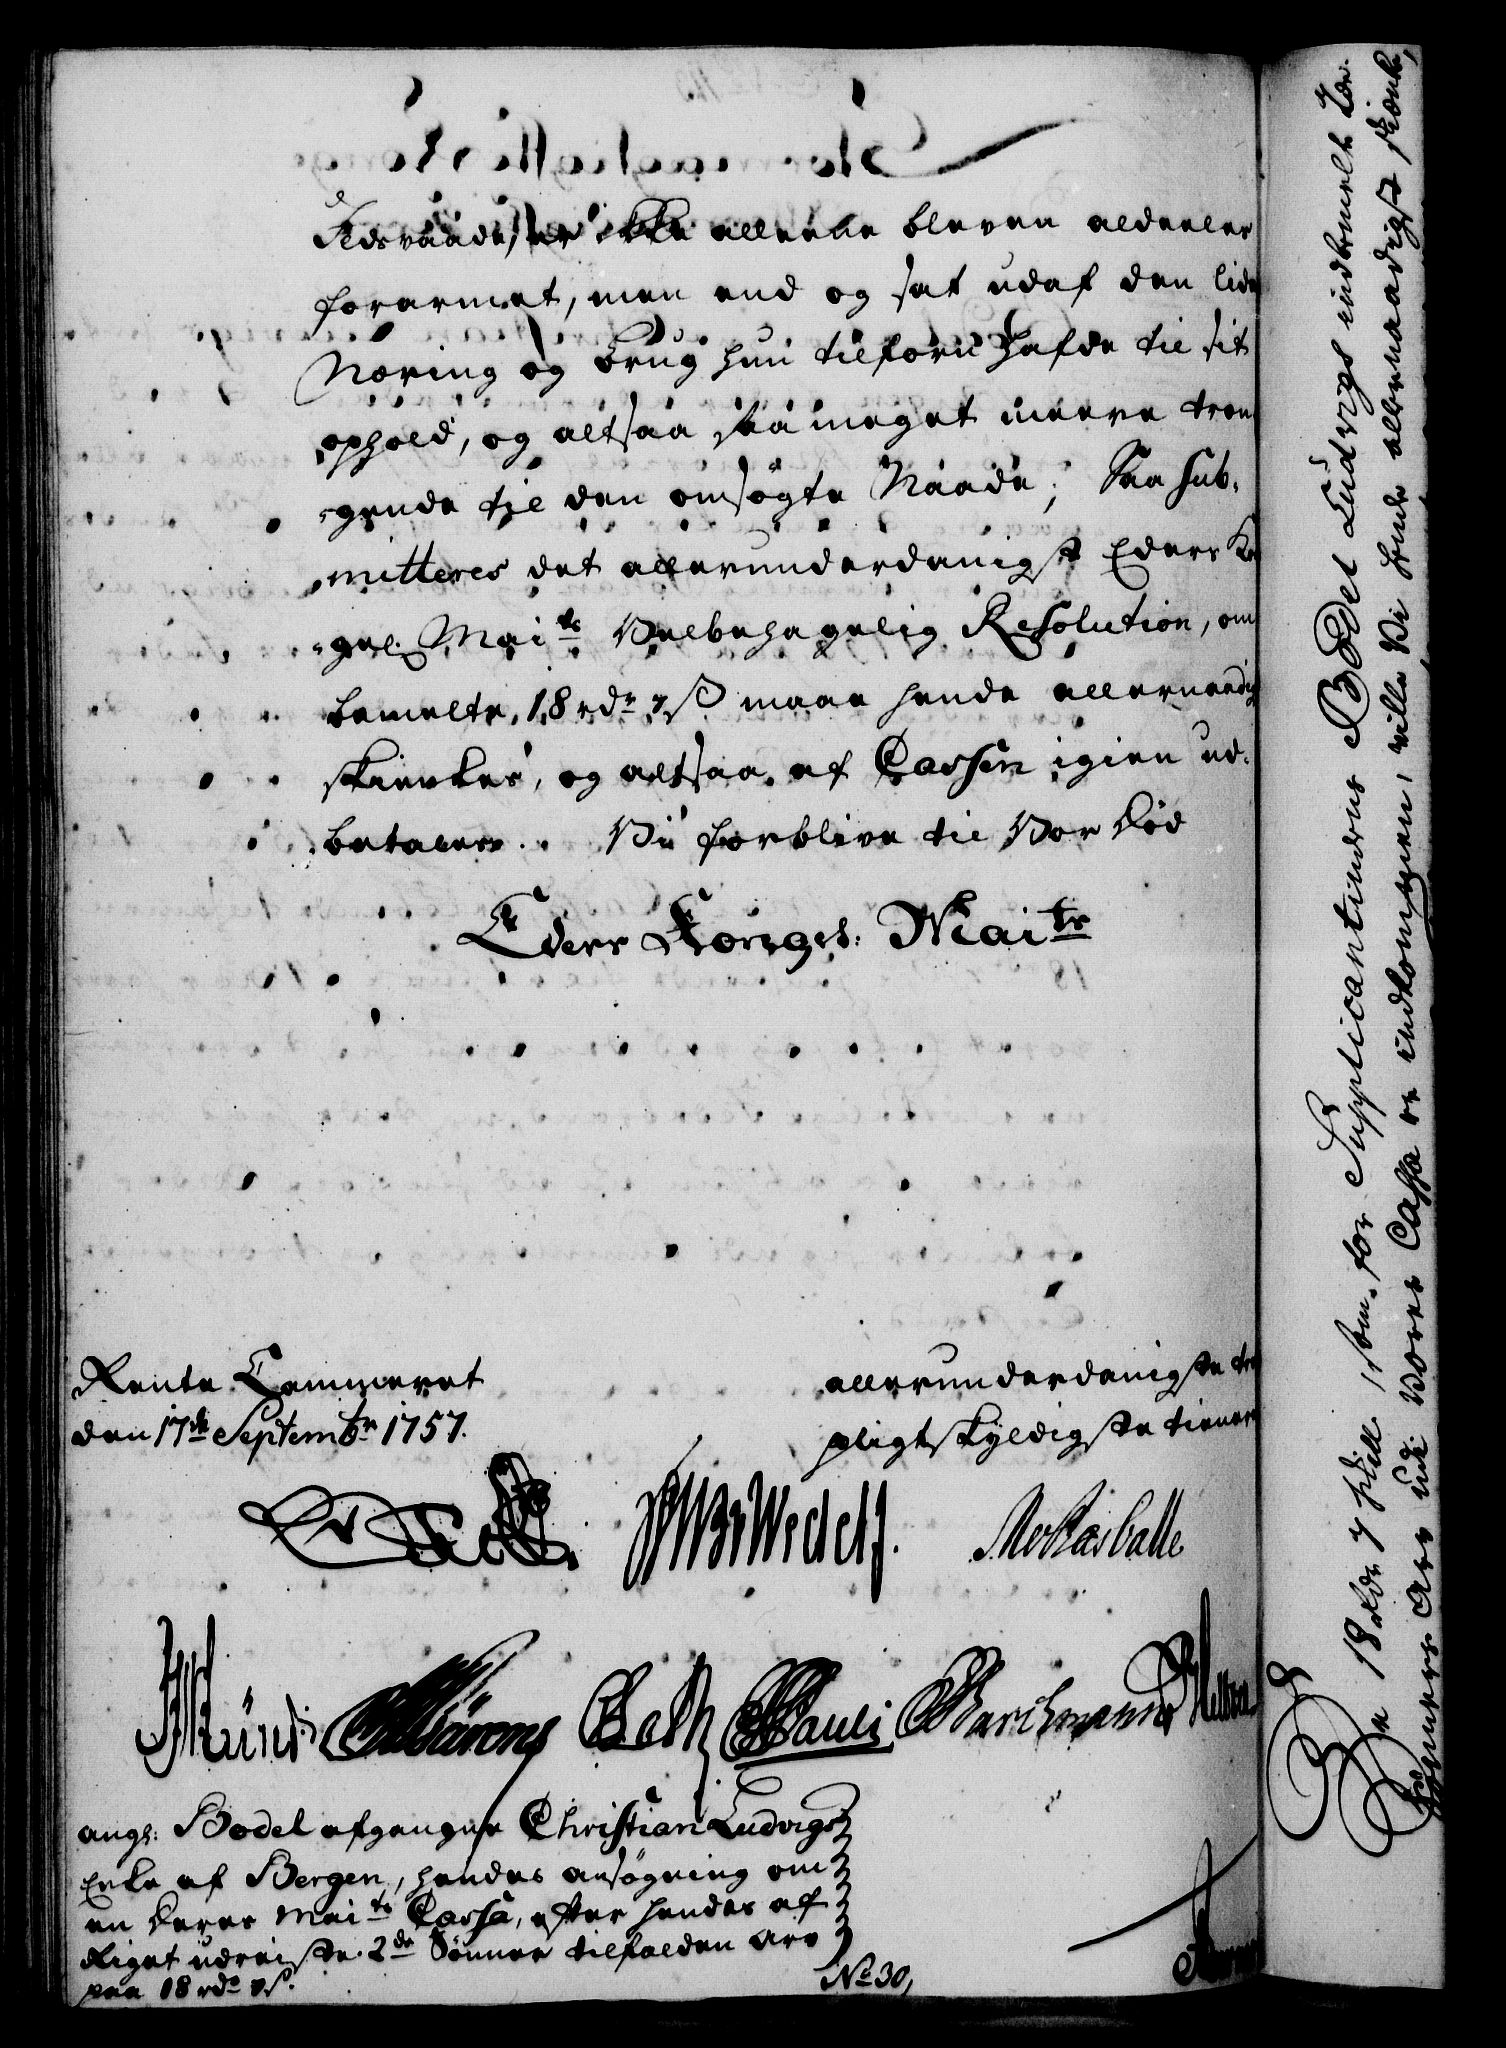 Ildsvaade, er ikke alleene bleven aldeeles
forarmet, men end og sat udaf den lide
Næring og brug hun tilforn hafde til sit
ophold, og altsaa saa meget meere tren-
gende til den omsøgte Naade; Saa sub-
mitteres det allerunderdanigst Eders Ko
gel. Mai.ts Velbehagelig Resolution, om
bemelte 18 rdr 7 ß maae hende allernaadig
skienkes, og altsaa af Cassen igien ud-
betales. Vi forblive til Vor död
Eders Kongel: Mai.ts
Rente Cammeret
den 17de Septembr 1757.
allerunderdanigste tro
pligtskyldigste tienere
Wedel
Rasballe
Bärens Pauli Barchmann
ang: Bodel afgangne Christian Ludvigs
Enke af Bergen, hendes ansøgning om
en deres Mai.ts Cassa, efter hendes af
Riget udreiste 2de Sönner tilfalden Arv
paa 18 rdr 7 ß.
No 30,
De 18 rdr 7 skill som for Supplicantindens Bodel Ludvigs indbemelt
Sönners Arv udi Vores Cassa er indkommen, ville Vi hende allernaadigst skienke,